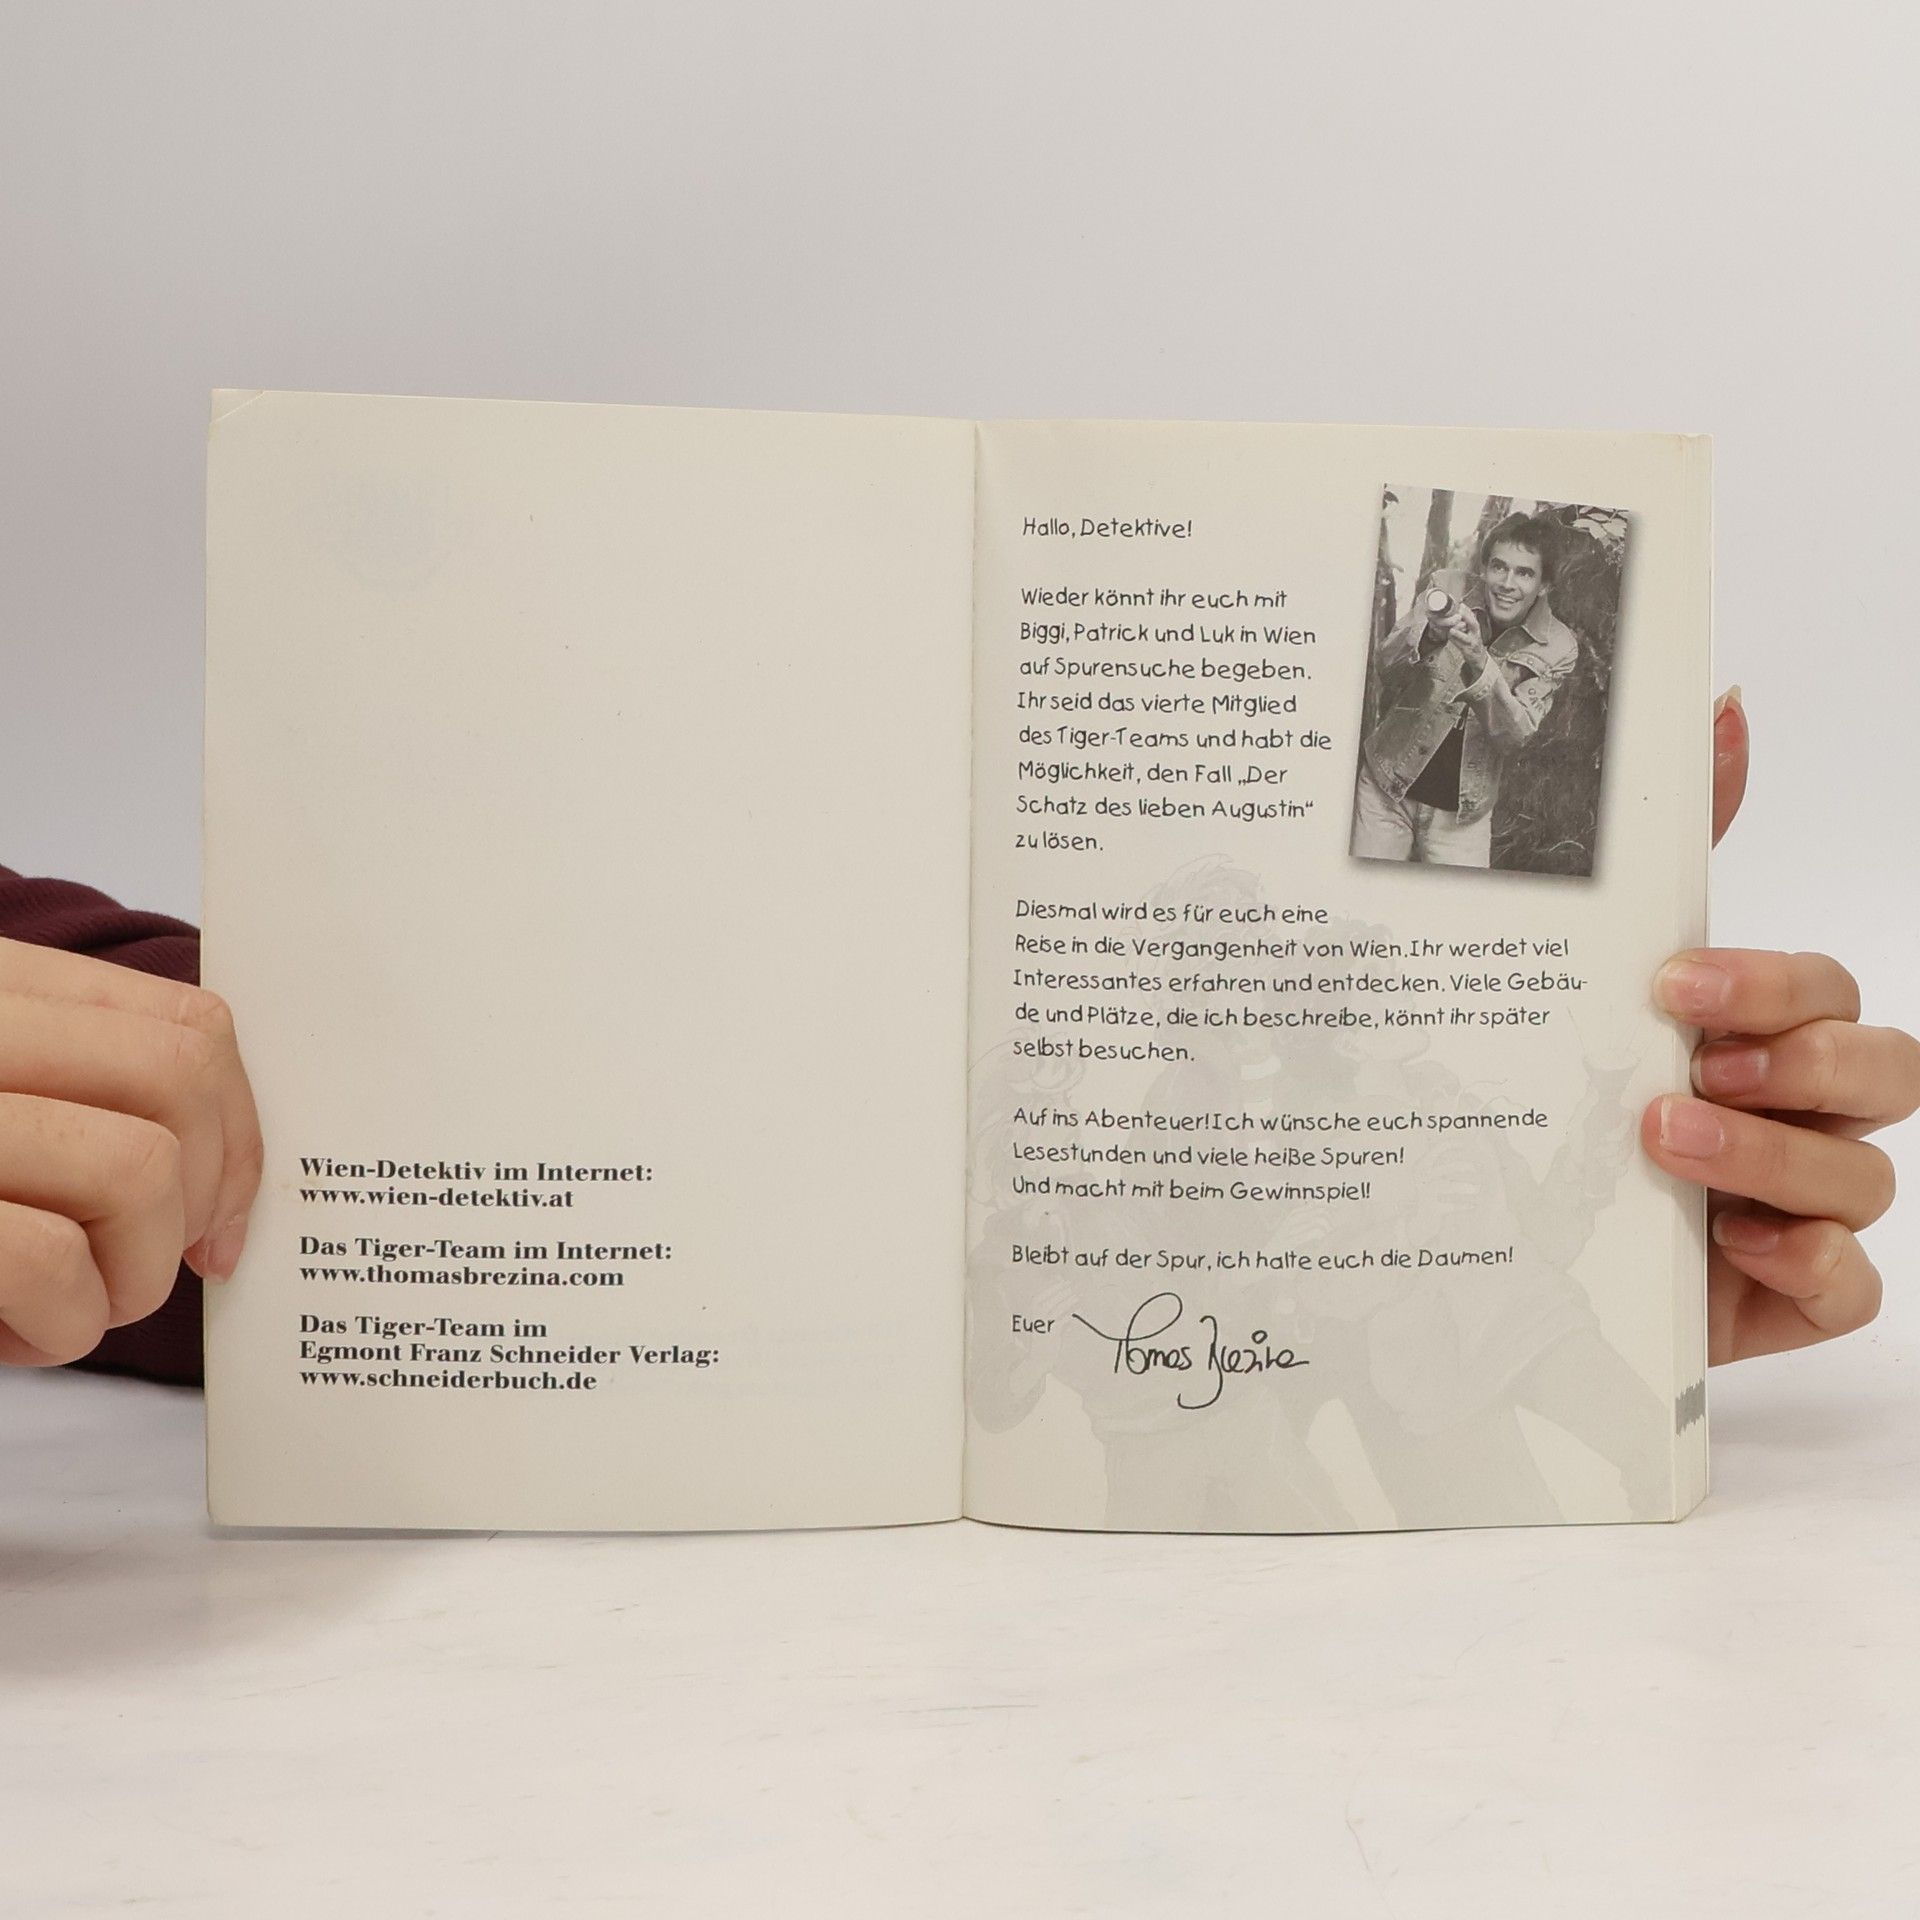 Wien-Detektiv im Internet:
www.wien-detektiv.at
Das Tiger-Team im Internet:
www.thomasbrezina.com
Das Tiger-Team im
Egmont Franz Schneider Verlag:
www.schneiderbuch.de
Hallo, Detektive!
Wieder könnt ihr euch mit
Biggi, Patrick und Luk in Wien
auf Spurensuche begeben.
Ihr seid das vierte Mitglied
des Tiger-Teams und habt die
Möglichkeit, den Fall „Der
Schatz des lieben Augustin“
zu lösen.
Diesmal wird es für euch eine
Reise in die Vergangenheit von Wien. Ihr werdet viel
Interessantes erfahren und entdecken. Viele Gebäu-
de und Plätze, die ich beschreibe, könnt ihr später
selbst besuchen.
Auf ins Abenteuer! Ich wünsche euch spannende
Lesestunden und viele heiße Spuren!
Und macht mit beim Gewinnspiel!
Bleibt auf der Spur, ich halte euch die Daumen!
Euer Thomas Brezina